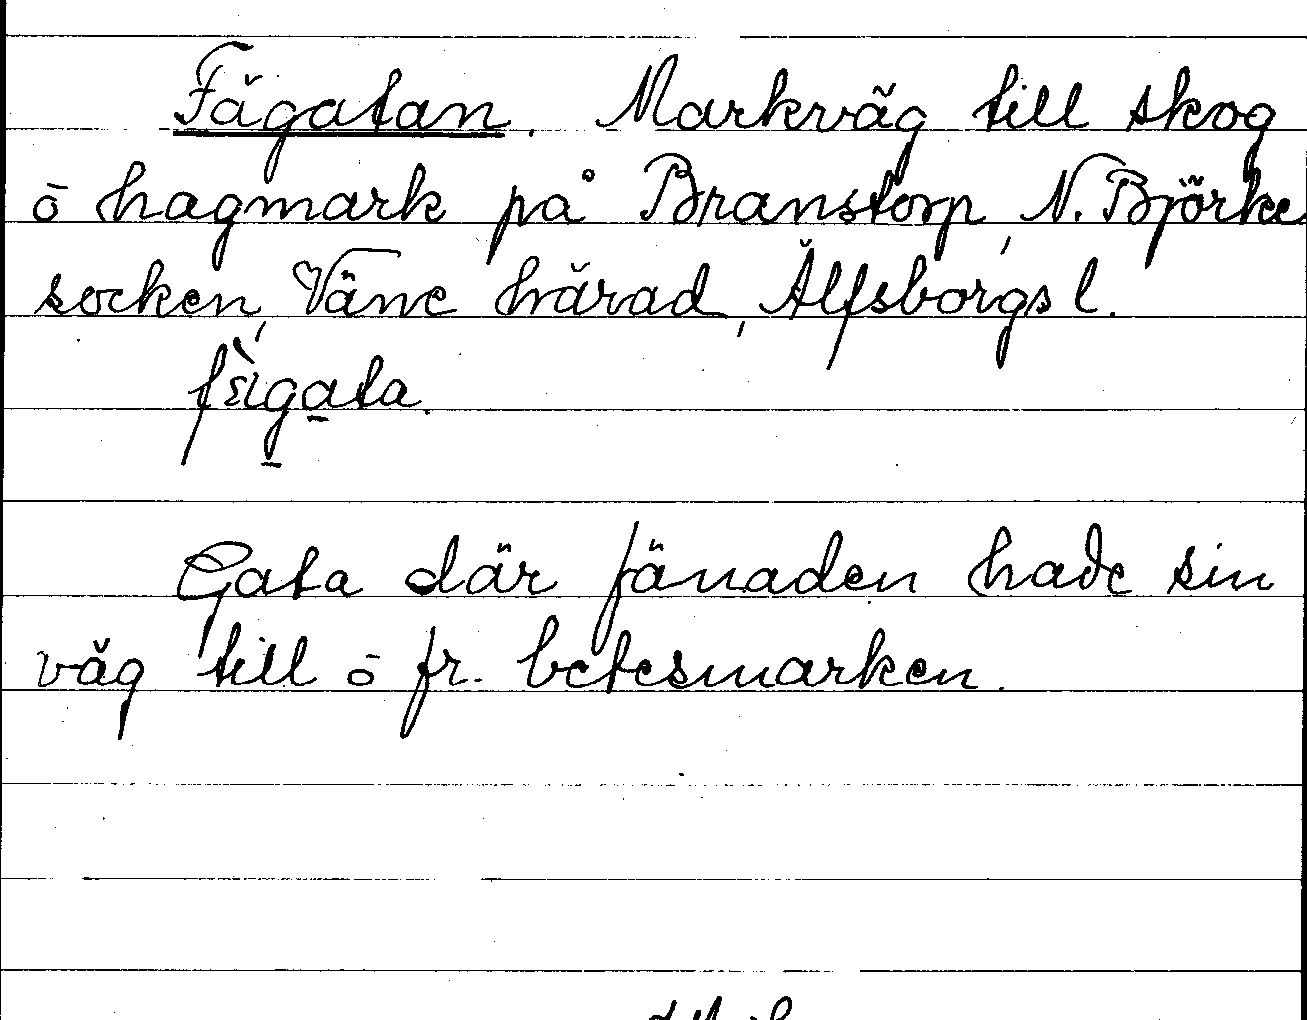 Fägatan. Markväg till skog
ō hagmark på Branstorp, N. Björke
socken, Väne härad, Älfsborgs l.
Gata där fänaden hade sin
väg till ō fr. betesmarken.